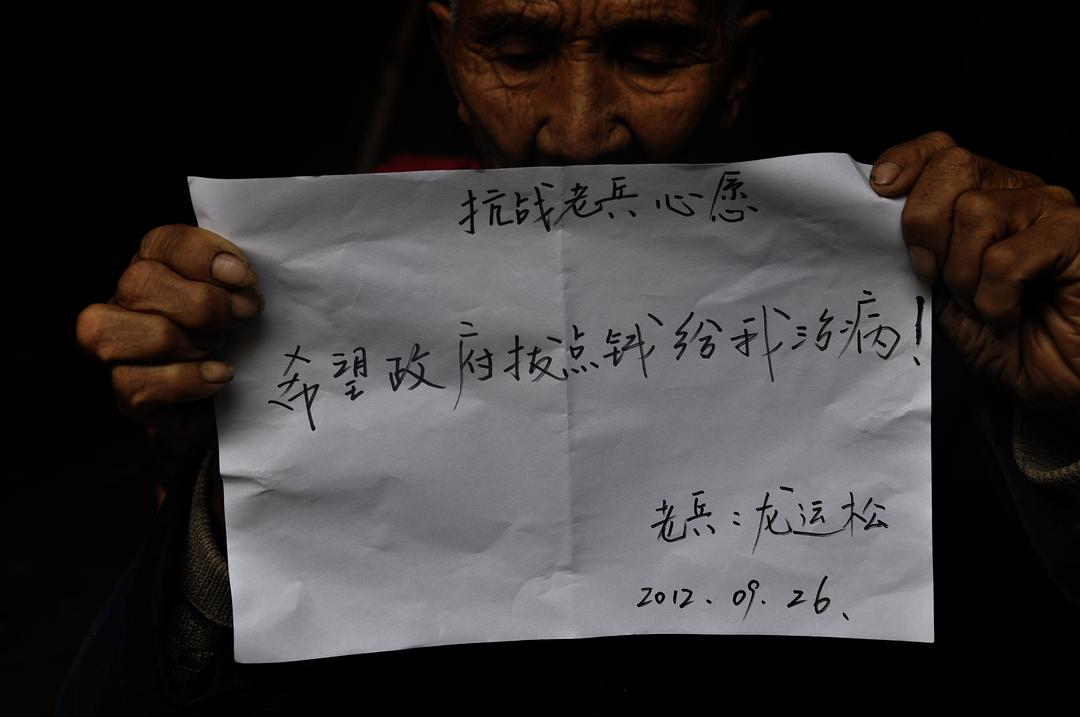 抗战老兵心愿
希望政府拔点钱给我治病！
老兵：龙运松
2012.09.26、